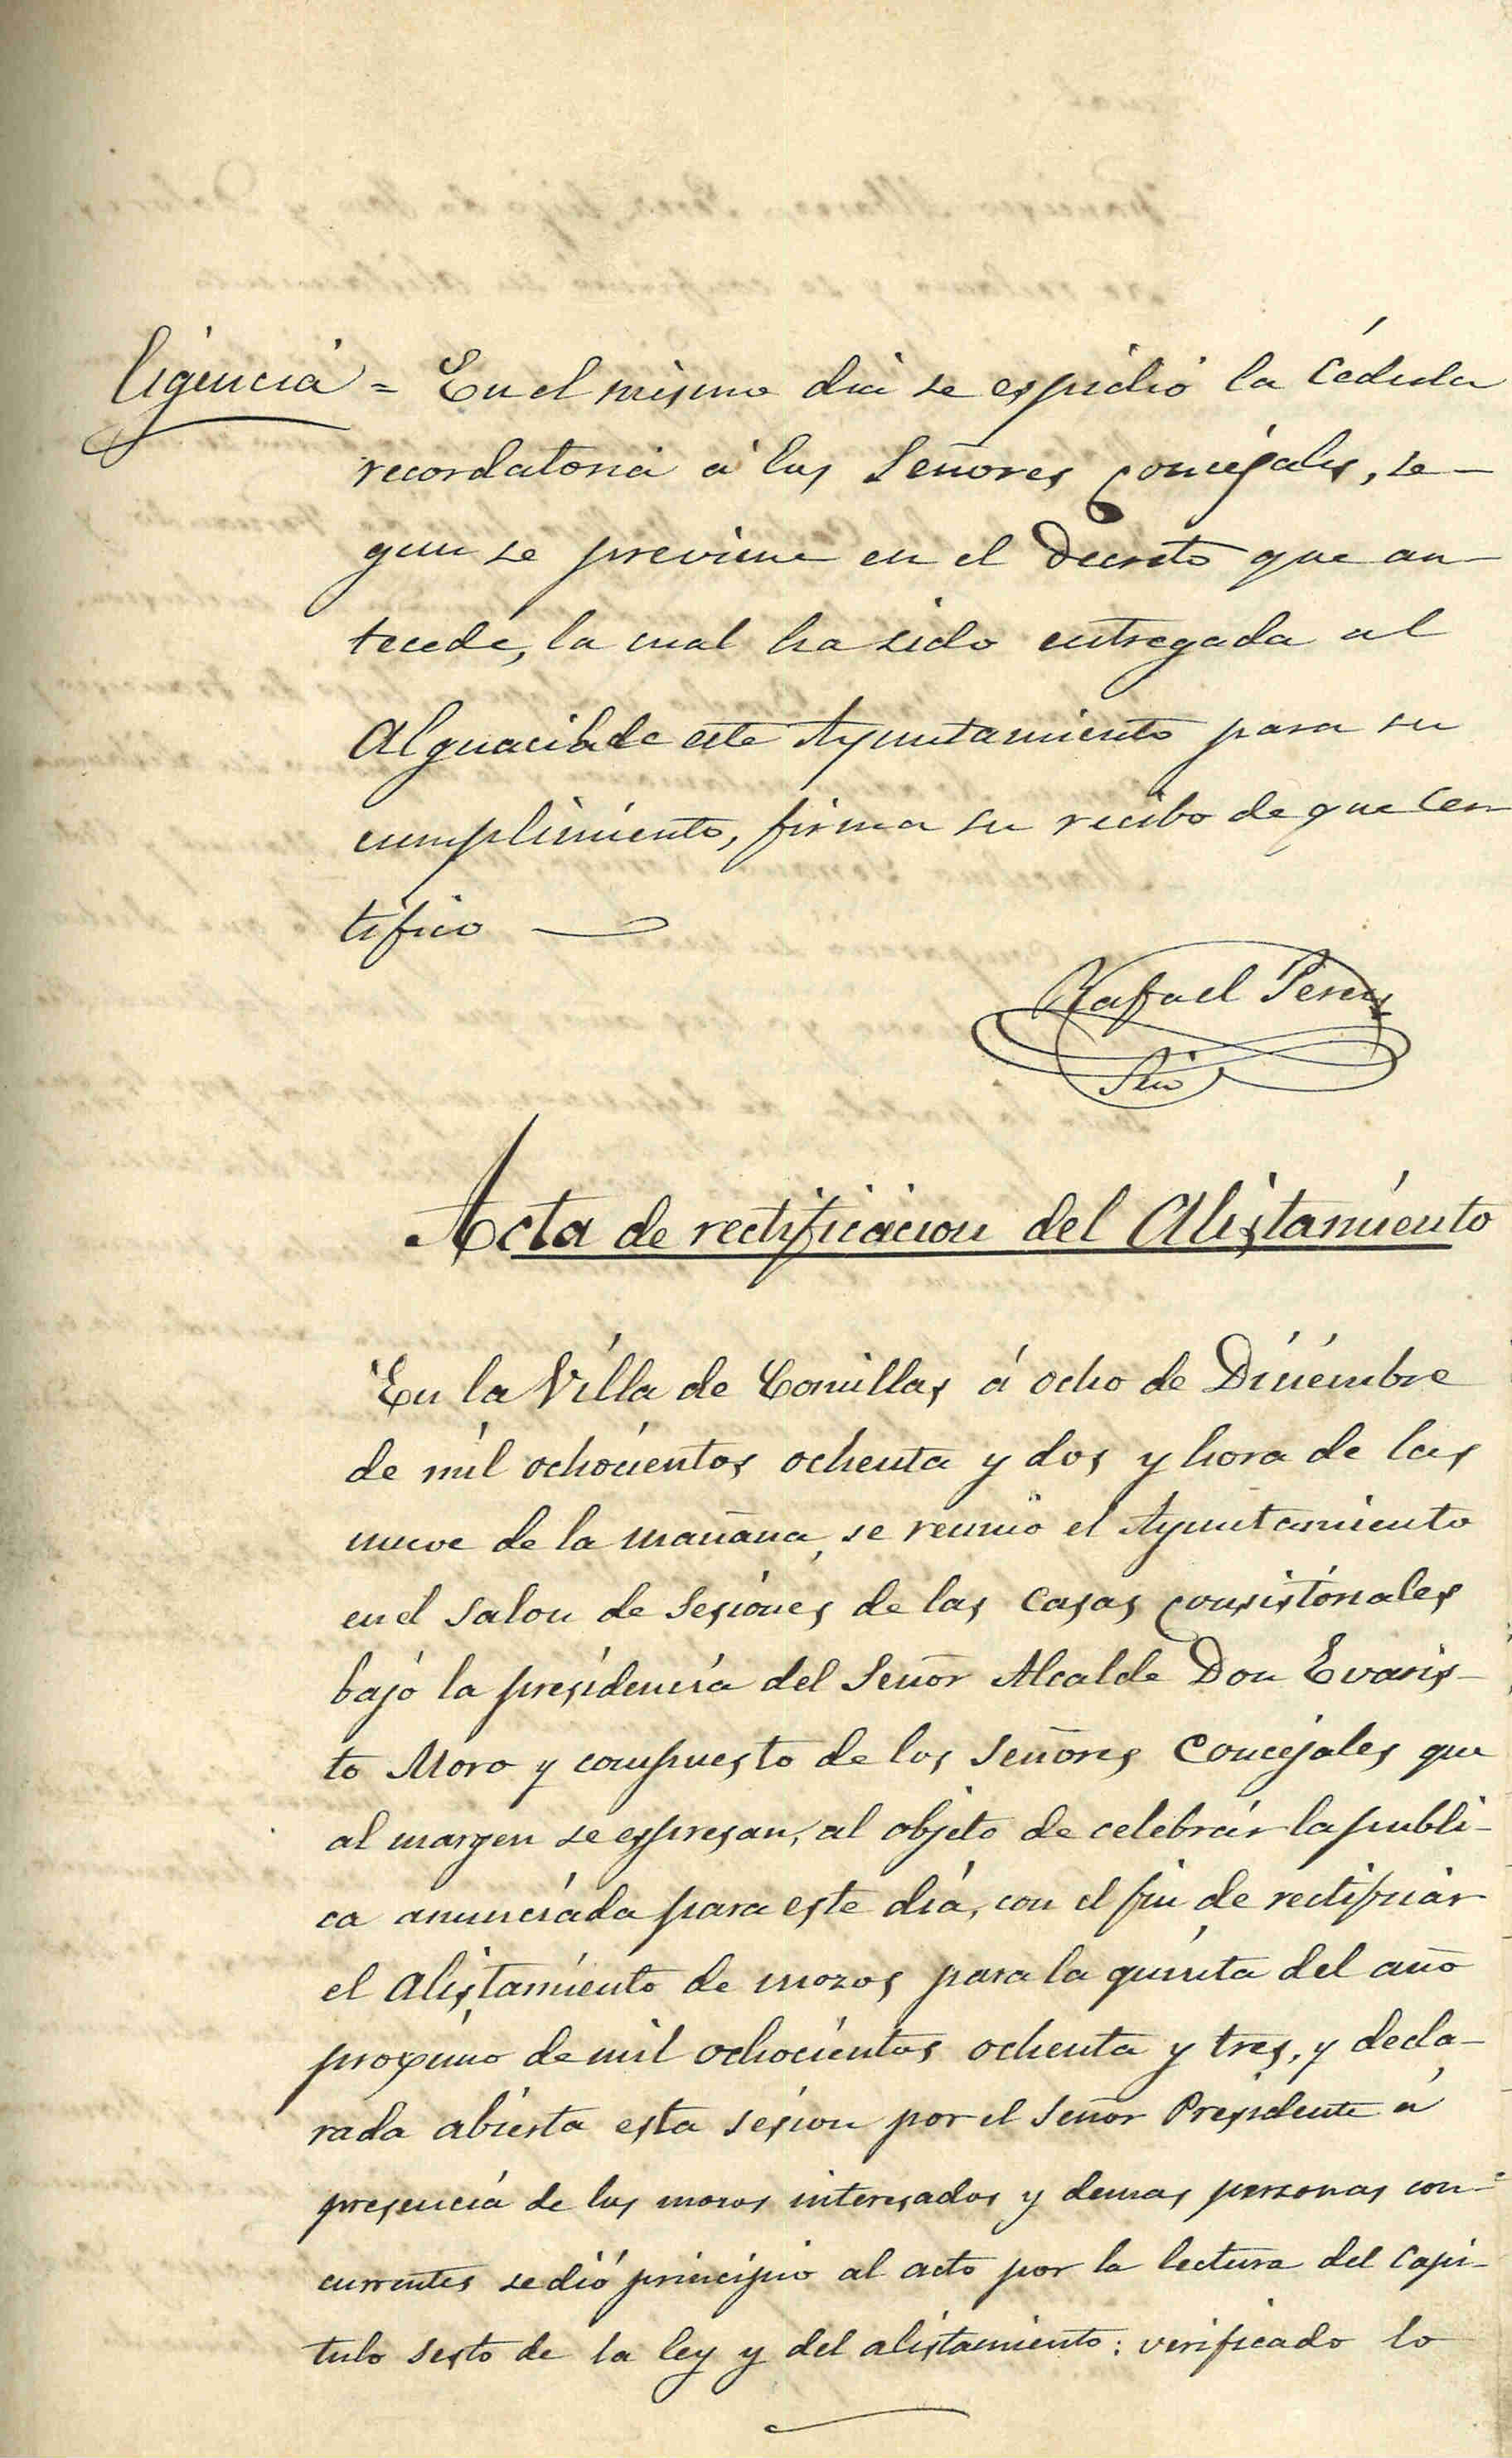 ligencia = En el mismo dia se espidió la Cédula
recordatoria á los Señores Concejales, se-
gun se previene en el Decreto que an-
tecede, la cual ha sido entregada al
Alguacil de este Ayuntamiento para su
cumplimiento, firma su recibo de que cer
tifico
Rafael Perez
Srio
Acta de rectificacion del Alistamiento
En la Villa de Comillas á ocho de Diciembre
de mil ochocientos ochenta y dos y hora de las
nueve de la mañana, se reunió el Ayuntamiento
en el Salon de Sesiones de las Casas Consistoriales
bajo la presidencia del Señor Alcalde Don Evaris-
to Moro y compuesto de los Señores Concejales que
al margen se espresan, al objeto de celebrar la publi-
ca anunciada para este dia, con el fin de rectificar
el Alistamiento de mozos para la quinta del año
proximo de mil ochocientos ochenta y tres, y decla-
rada abierta esta sesion por el Señor Presidente á
presencia de los mozos interesados y demas personas con-
currentes se dió principio al acto por la lectura del Capi-
tulo sesto de la ley y del alistamiento: verificado lo